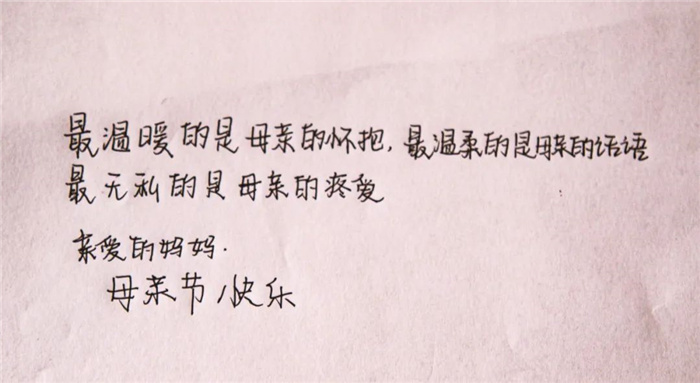 最温暖的是母亲的怀抱，最温柔的是母亲的话语
最无私的是母亲的疼爱
亲爱的妈妈.
母亲节快乐